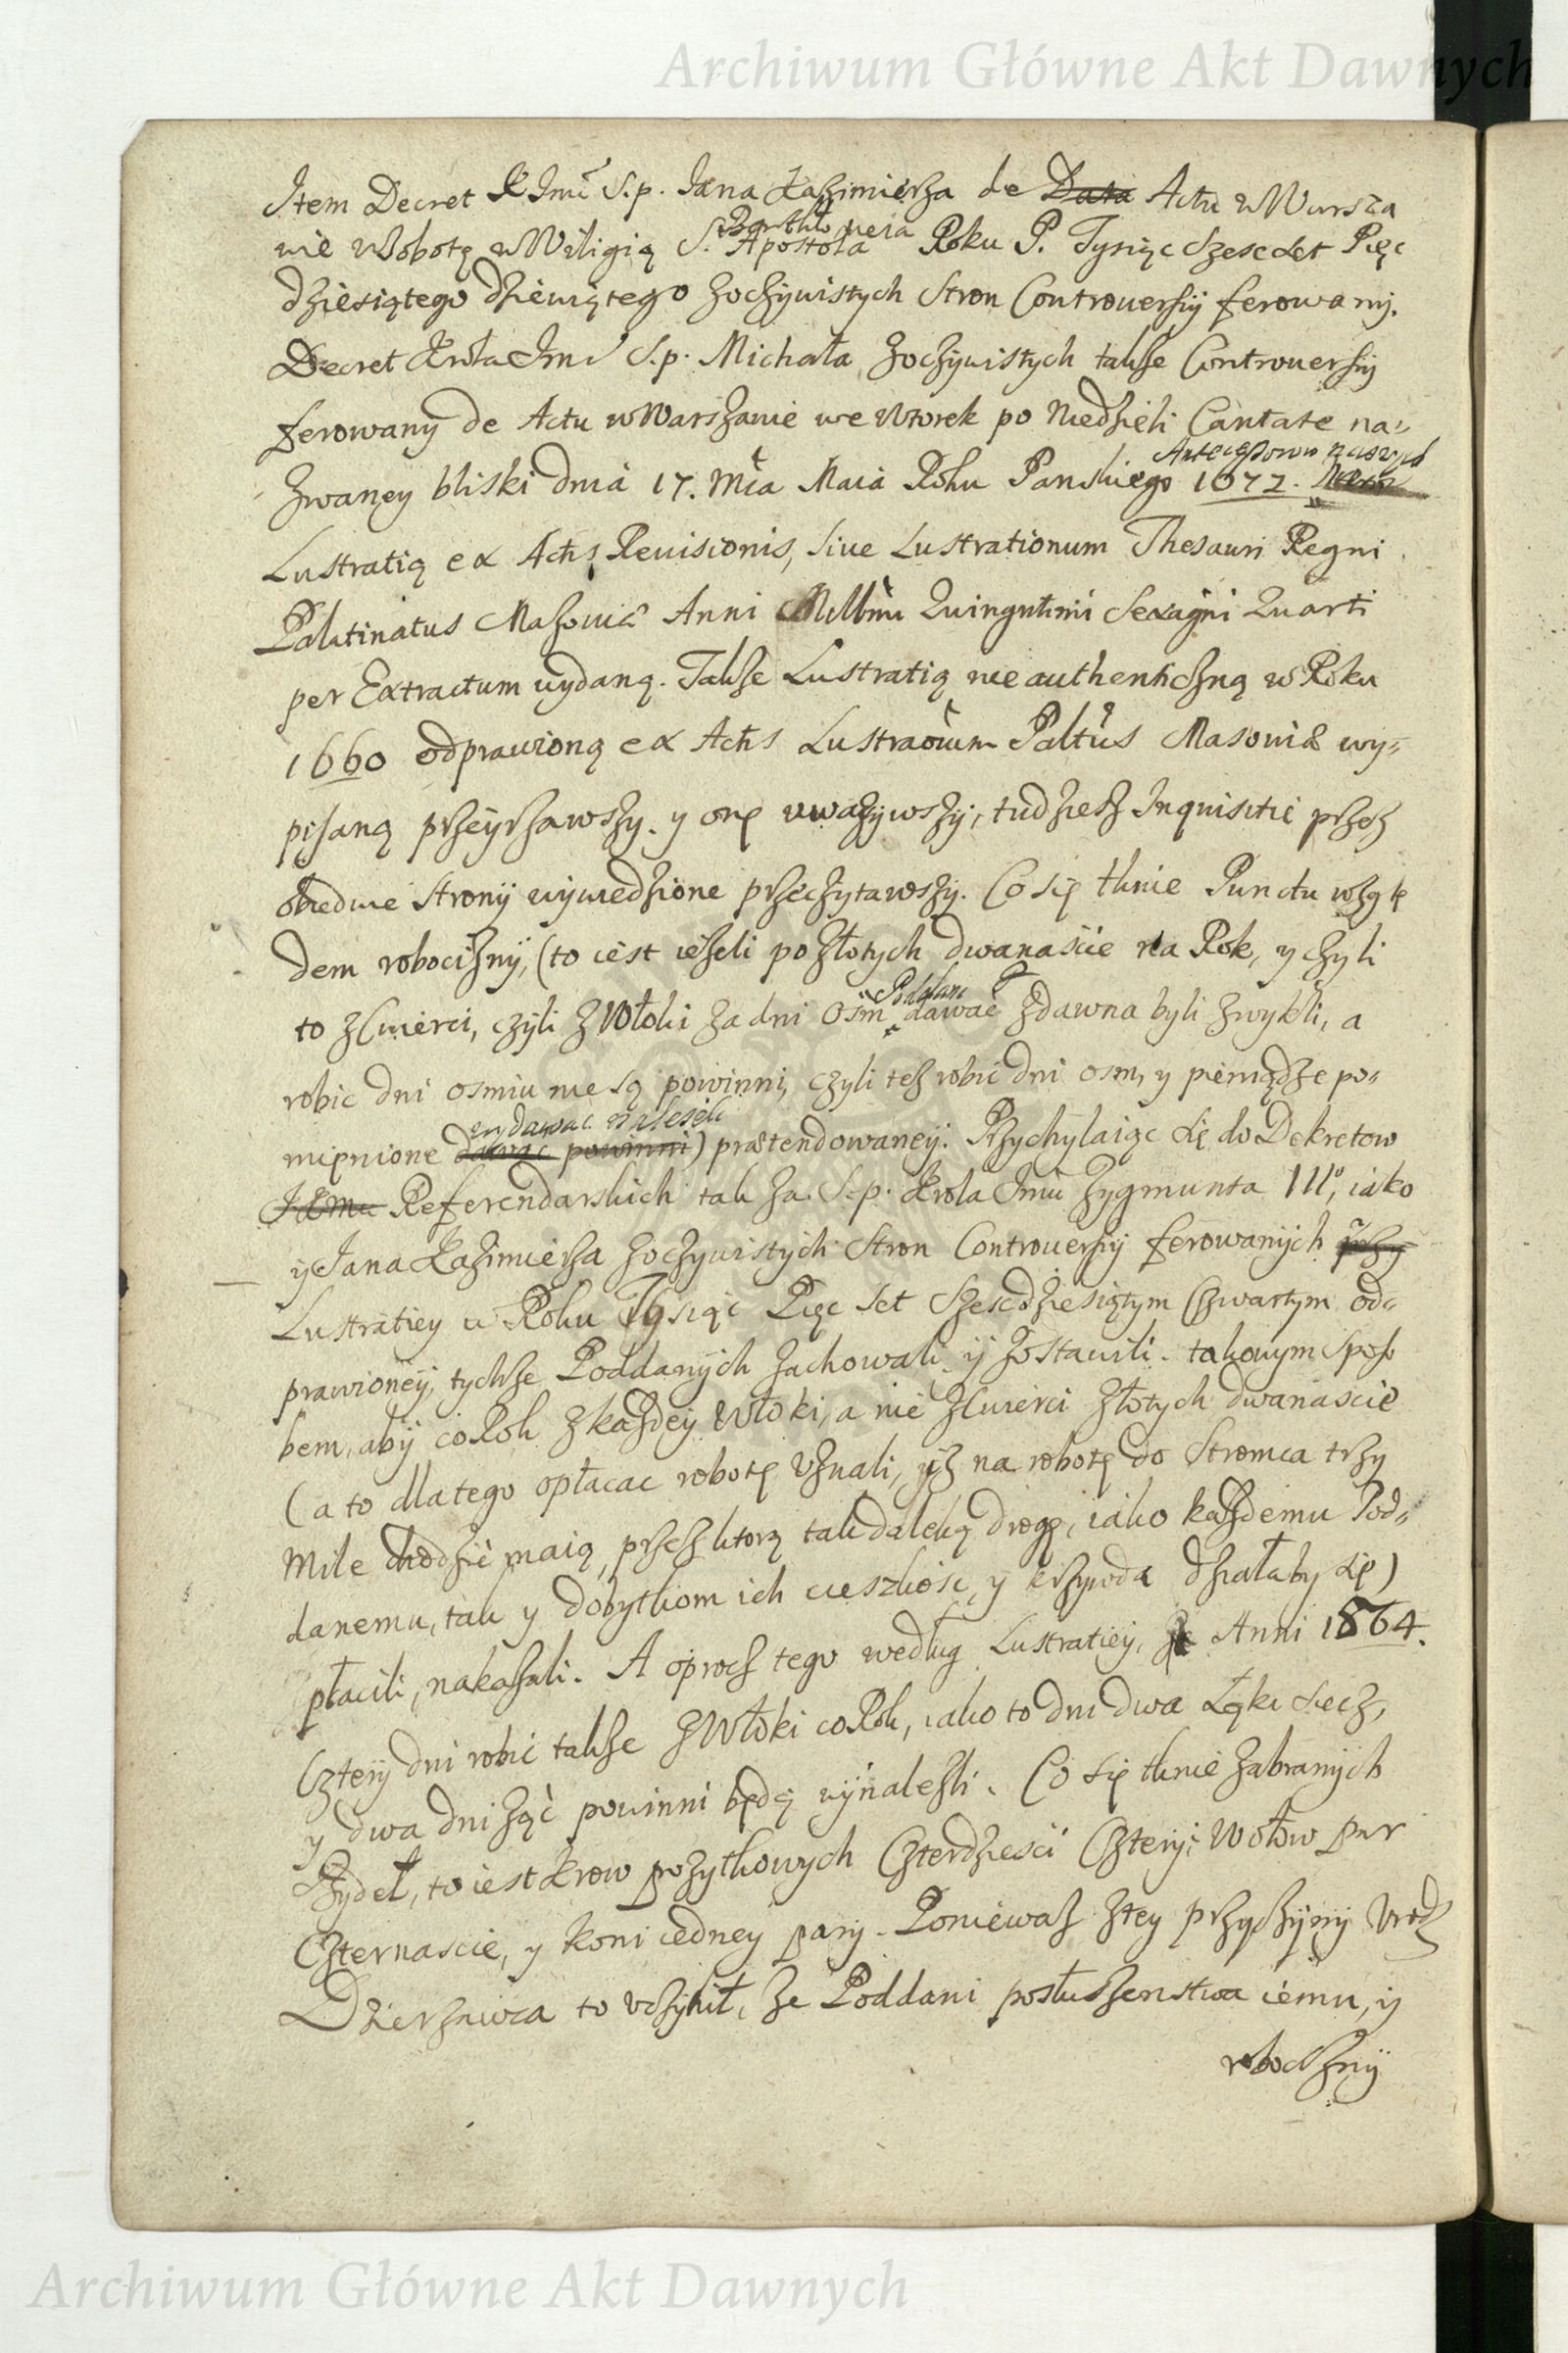 Archiwum Główne Akt Dawnych
Item Decret K Jmci S.p. Jana Kazimierza de Data Actu w Warsza
wie w Sobotę w Wiligią S. Bartłomieia Apostoła Roku P. Tysiąc Szesc Set Pięc
dziesiątego dziewiątego zoczywistych Stron Controuersÿi ferowanÿ.
Decret Krola Jmci S.p. Michała zoczywistych takze Controuersÿi
ferowany de Actu w Warszawie we Wtorek po Niedzieli Cantate na-
zwaney bliski dnia 17. Mca Maia Roku Panskiego 1672. Antecessorow naszych
Lustratią ex Actis Reuisionis, siue Lustrationum Thesauri Regni
Palatinatus Masouiæ Anni Millmi Quingentmi Sexagmi Quarti
per Extractum wydaną. Takze Lustratią nieauthenticzną w Roku
1660 odprawioną ex Actis Lustraonum Paltus Masouiæ wy-
pisaną przeyrzawszy. y onę uwazywszÿ, tudziesz Inquisitie przez
obiedwie Stronÿ wÿwiedzione przeczytawszÿ. Co się tknie Punctu wzglę
dem robociznÿ, (to iest iezeli po złotych dwanascie na Rok, y czyli
to z Cwierci, czÿli z Włoki za dni osm Poddani dawac zdawna byli zwykli, a
robic dni osmiu nie są powinni, czyli tesz robic dni osm, y pieniądze po-
mięnione dawac powinni wydawac nalezeli) prætendowaneÿ. Przychylaiąc się do Dekretow
Referendarskich tak za S.p. Krola Jmci Zygmunta IIIo, iako
ÿ Jana Kazimierza zoczywistÿch Stron Controuersÿi ferowanÿch przÿ
Lustratiey w Roku Tysiąc Pięc Set Szescdziesiątym Czwartym od-
prawioneÿ, tychze Poddanÿch zachowali ÿ zostawili. takowym sposo
bem, abÿ co Rok z kazdeÿ Włoki, a nie z Cwierci złotych dwanascie
(a to dlatego opłacac robotę uznali, ysz na robotę do Stromca trzy
Mile chodzic maią, przesz ktorą tak daleką drogę, iako kazdemu Pod-
danemu, tak y dobytkom ich cieszkosc, y krzywda działaby się)
płacili, nakazali. A oprocz tego według Lustratieÿ, Anni 1564.
Czterÿ dni robic takze z Włoki co Rok, iako to dni dwa Łąki siecz,
y dwa dni ząc powinni będą wÿnalezli. Co się tknie zabranÿch
Bydeł, to iest krow pozytkowych Czterdziesci Czterÿ, Wołow par
Czternascie, y koni iedney parÿ. Poniewasz ztey przyczÿnÿ Urodz
Dzierzawca to uczynił, ze Poddani posłuszenstwa iemu, ÿ
robociznÿ
Archiwum Główne Akt Dawnych